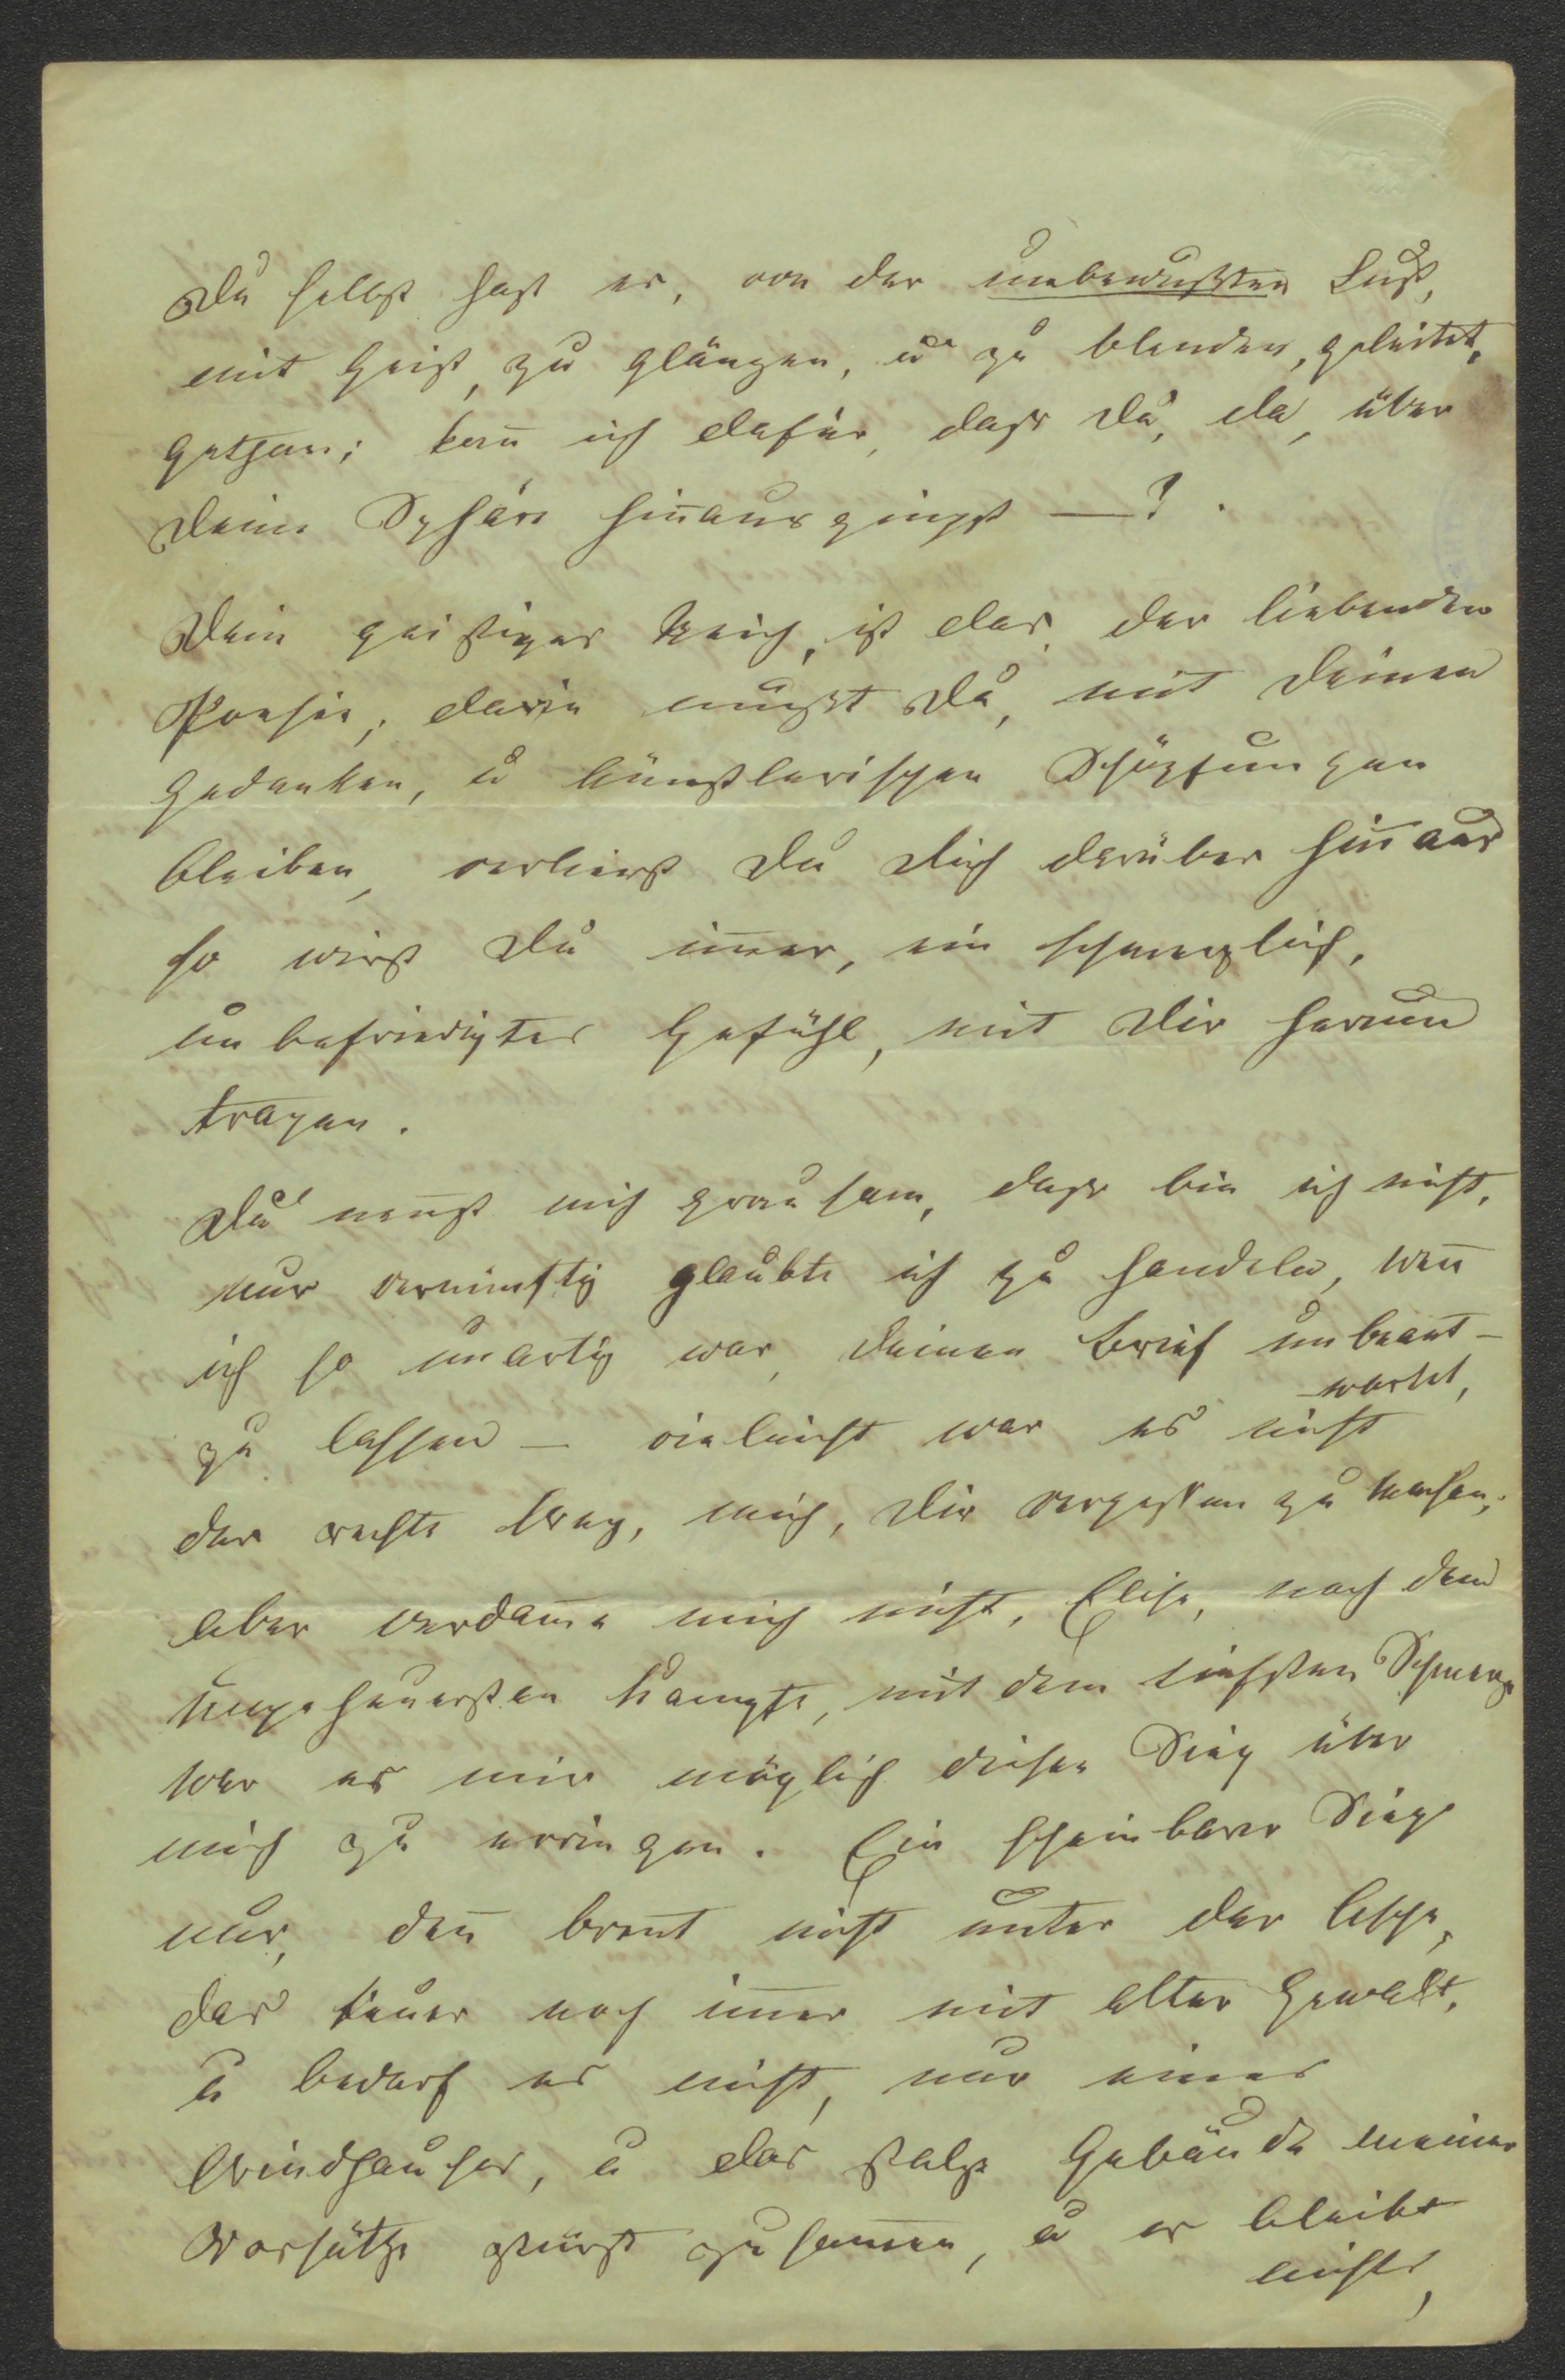 Du selbst hast es, von der unbewußten Lust,
mit Geist, zu glänzen, u zu blenden, geleitet,
gethan; kan̄ ich dafür, dass Du, da, über
Deine Sphäre hin̄ausgingst —? .
Dein geistiges Reich, ist das, der liebenden
Poesie, darin mußt Du, mit Deinen
Gedanken, u künstlerischen Schöpfungen
bleiben, verlierst Du Dich darüber hin̄aus
so wirst Du im̄er, ein schmerzlich,
unbefriedigtes Gefühl, mit Dir herum
tragen.
Du nen̄st mich grausam, dass bin ich nicht,
nur vernünftig glaubte ich zu handeln, wen̄
ich so unartig war, Deinen Brief unbeant-
-wortet,
zu lassen — vieleicht war es nicht
der rechte Weg, mich, Dir vergessen zu machen;
aber verdam̄e mich nicht, Elise, nach dem
ungeheuersten Kampfe, mit dem tiefsten Schmerze
war es mir möglich diesen Sieg über
mich zu erringen. Ein scheinbarer Sieg
nur, den̄ bren̄t nicht unter der Asche,
das Feuer noch im̄er mit alter Gewalt,
u bedarf es nicht, nur eines
Windhauches, u das stolze Gebäude meiner
Vorsätze stürzt zusam̄en, u es bleibt
nichts,